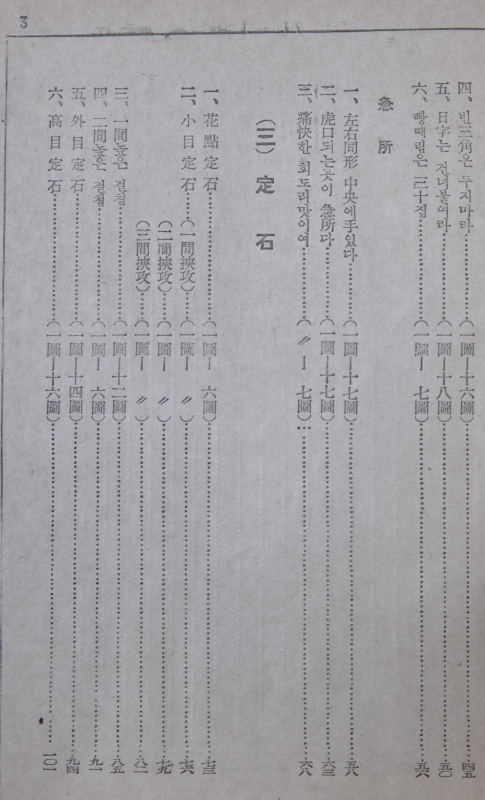 3
四、빈三角은 두지마라……(一圖―十六圖)……四五
五、日字는 건너붙여라……(一圖―十八圖)……五〇
六、빵때림은 三十집……(一圖― 七圖)……五六
急 所
一、左右同形 中央에手있다……(一圖―十七圖)……五八
二、虎口되는곳이 急所다……(一圖―十七圖)……六三
三、痛快한 회도리맛이여……(〃― 七圖)……六八
(三) 定 石
一、花點定石……(一圖― 六圖)……七三
二、小目定石……(一間挾攻)……(一圖― 〃 )……七六
(二間挾攻)……(一圖― 〃 )……七九
(三間挾攻)……(一圖― 〃 )……八二
三、一間높은 걸침……(一圖―十二圖)……八五
四、二間높은 걸침……(一圖― 六圖)……九一
五、外目定石……(一圖―十四圖)……九四
六、高目定石……(一圖―十六圖)……一〇一